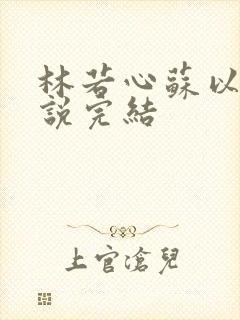 林若心蘇以
說完結
上官滄兒